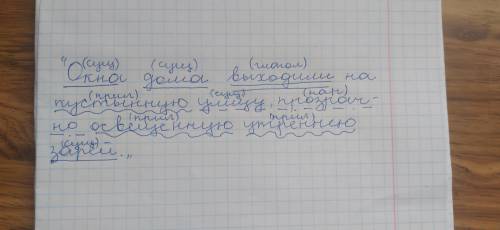 (сущ) (сущ) (глагол)
"Окна дома выходили на
(прил) (сущ) (нар)
пустынную улицу, прозрач-
(прил) (прил)
но освещенную утреннею
(сущ)
зарей.„